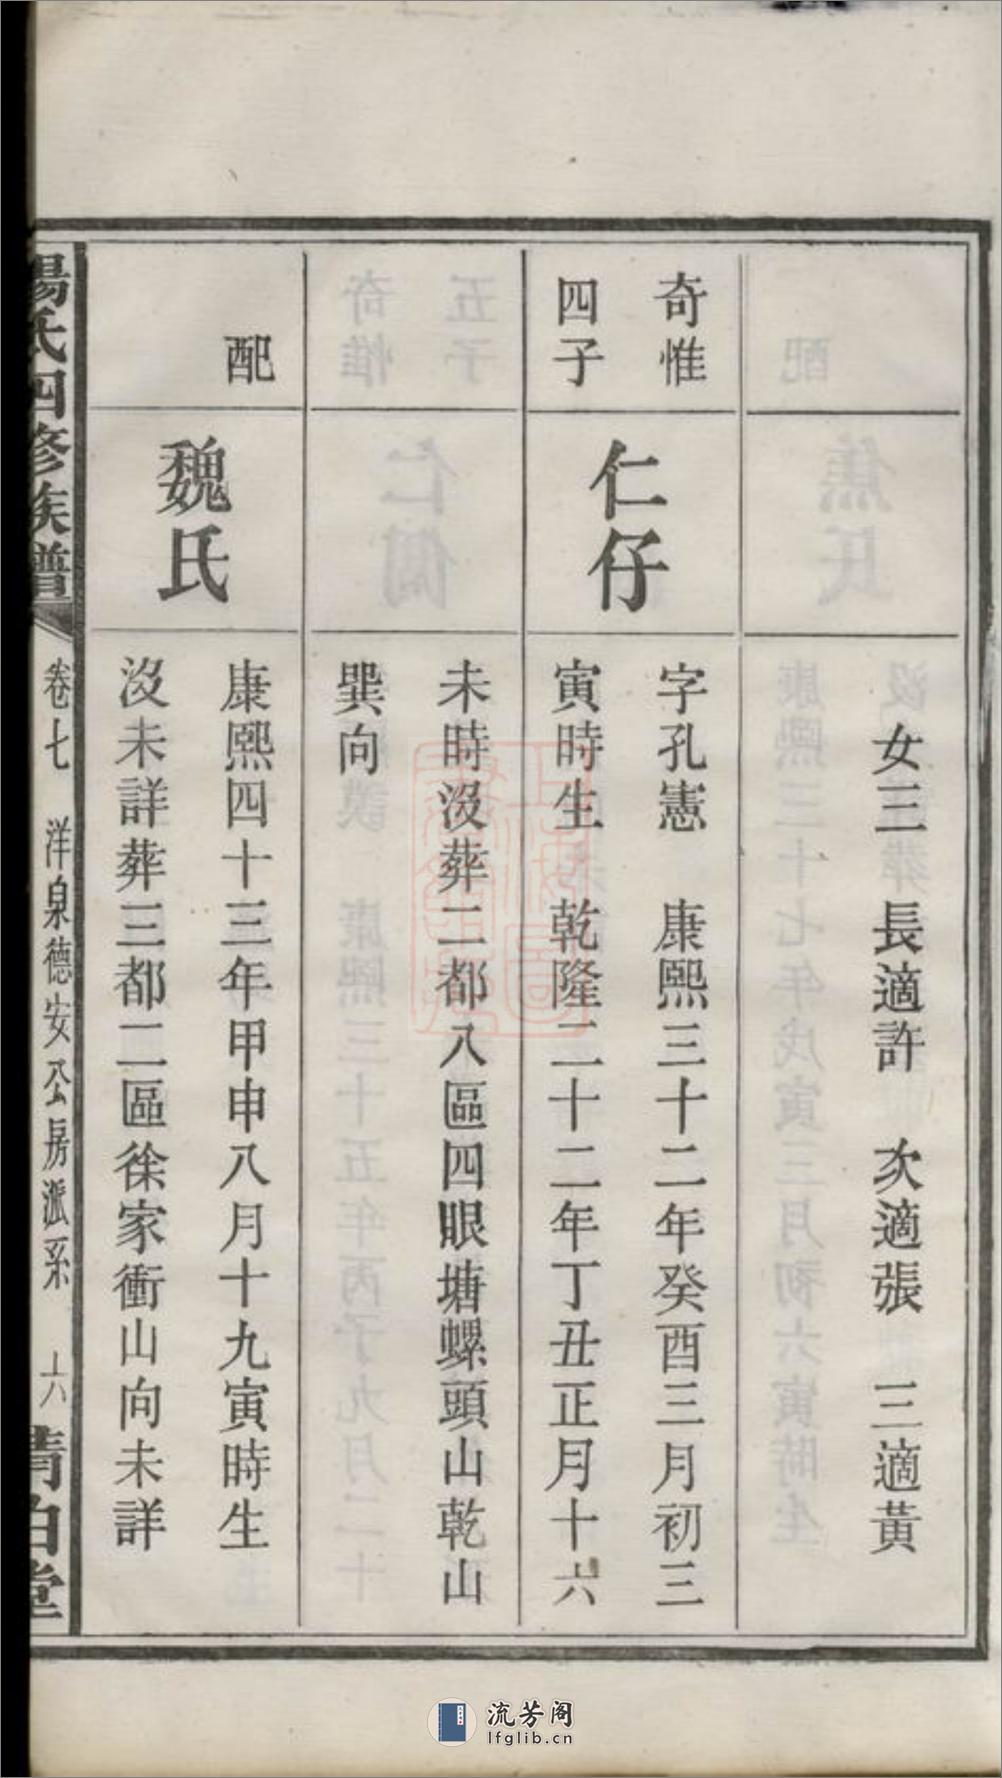 女三　長適許　次適張　三適黃
奇惟
四子
仁仔
字孔憲　康熙三十二年癸酉三月初三
寅時生　乾隆二十二年丁丑正月十六
未時沒葬二都八區四眼塘螺頭山乾山
巽向
配
魏氏
康熙四十三年甲申八月十九寅時生
沒未詳葬三都二區徐家衝山向未詳
楊氏四修族譜
卷七　洋泉德安公房派系　六
清白堂
流芳阁
lfglib.cn